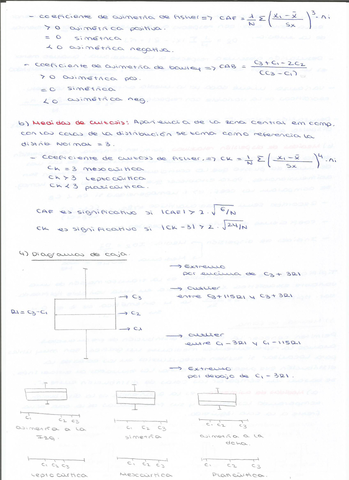 - Coeficiente de asimetría de Fisher => CAF = 1/N Σ (xi - x̄ / Sx)³ · ni
> 0 asimétrica positiva.
= 0 simétrica
< 0 asimétrica negativa.
- Coeficiente de asimetría de Bowley => CAB = C3 + C1 - 2C2 / (C3 - C1)
> 0 asimétrica pos.
= 0 simétrica
< 0 asimétrica neg.
b) Medidas de curtosis: Apariencia de la zona central en comp.
con las colas de la distribución se toma como referencia la
distrib. Normal = 3.
- Coeficiente de curtosis de Fisher => CK = 1/N Σ (xi - x̄ / Sx)⁴ · ni
CK = 3 mesocúrtica.
CK > 3 leptocúrtica
CK < 3 platicúrtica.
CAF es significativo si |CAF| > 2 · √6/N
CK es significativo si |CK - 3| > 2 · √24/N
4) Diagramas de caja
→ Extremo
por encima de C3 + 3RI
→ Outlier
entre C3 + 1'5RI y C3 + 3RI
→ C3
RI = C3 - C1
→ C2
→ C1
→ Outlier
entre C1 - 3RI y C1 - 1'5RI
→ Extremo
por debajo de C1 - 3RI.
C1 C2 C3
C1 C2 C3
C1 C2 C3
asimetría a la
izq
simetría
asimetría a la
C1 C2 C3
C1 C2 C3
C1 C2 C3
Leptocúrtica
Mesocúrtica
Platicúrtica.